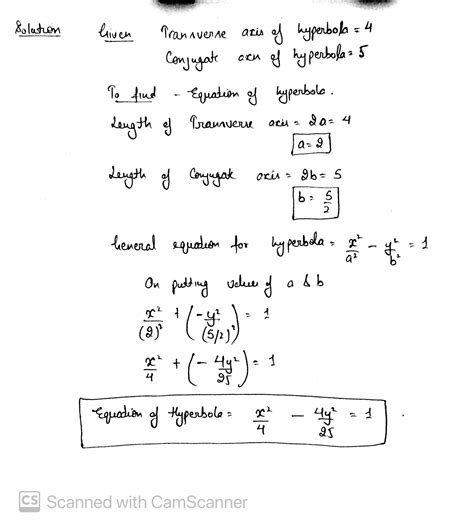 Solution Given Transverse axis of hyperbola = 4
Conjugate axis of hyperbola = 5
To find - Equation of hyperbola.
Length of Transverse axis = 2a = 4
a = 2
Length of Conjugate axis = 2b = 5
b = 5/2
General equation for hyperbola = x²/a² - y²/b² = 1
On putting values of a & b
x²/(2)² + (-y²/(5/2)²) = 1
x²/4 + (- 4y²/25) = 1
Equation of Hyperbola = x²/4 - 4y²/25 = 1 .
CS Scanned with CamScanner